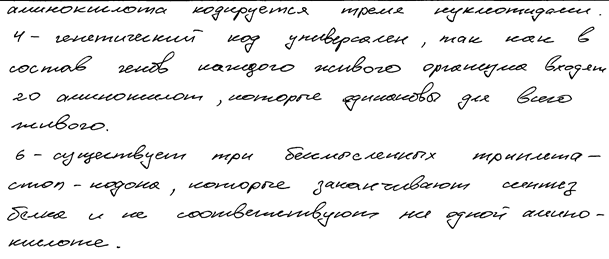 аминокислота кодируется тремя нуклеотидами.
4 - генетический код универсален, так как в
состав генов каждого живого организма входят
20 аминокислот, которые одинаковы для всего
живого.
6 - существует три бессмысленных триплета -
стоп - кодона, которые заканчивают синтез
белка и не соответствуют ни одной амино-
кислоте.